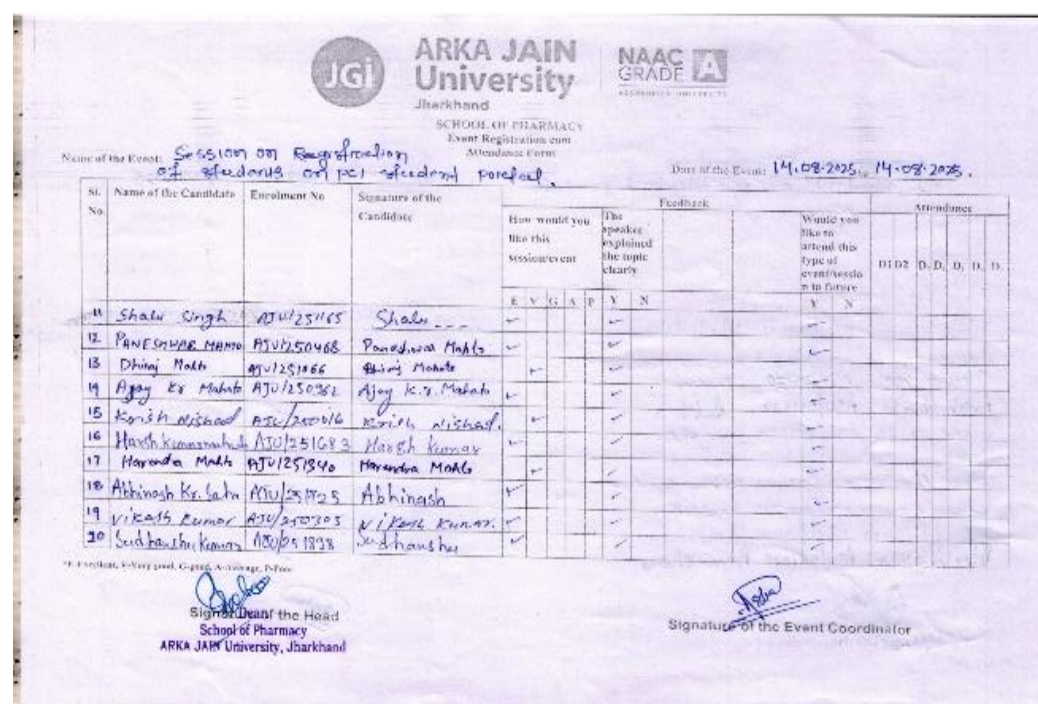 JGi
ARKA JAIN
University
Jharkhand
NAAC
GRADE A
SCHOOL OF PHARMACY
Event Registration cum
Attendance Form
Name of the Event: Session on Registration
of students on PCI student portal.
Date of the Event: 14.08.2025 14.08.2025.
Sl. No. Name of the Candidate Enrolment No Signature of the Candidate Feedback Attendance
How would you like this session/event
The speaker explained the topic clearly
Would you like to attend this type of event/session in future
D1 D2 D. D. D. D. D.
E V G A P Y N Y N
11 Shalu Singh AJU/251165 Shalu
12 PANESHWAR MAHTO AJU/250468 Paneshwar Mahto
13 Dhiraj Mahto AJU/251066 Dhiraj Mahato
14 Ajay Kr Mahato AJU/250962 Ajay K.r. Mahato
15 Krish Nishad Krish Nishad.
16 Harsh Kumar AJU/251683 Harsh Kumar
17 Harendra Mahto AJU/251340 Harendra Mahto
18 Abhinash Kr. Sahu Abhinash
19 Vikash Kumar AJU/250303 Vikash Kumar.
20 Sudhanshu Kumar AJU/251898 Sudhanshu
*E-Excellent, V-Very good, G-good, A-Average, P-Poor
Dean of the Head
School of Pharmacy
ARKA JAIN University, Jharkhand
Signature of the Event Coordinator